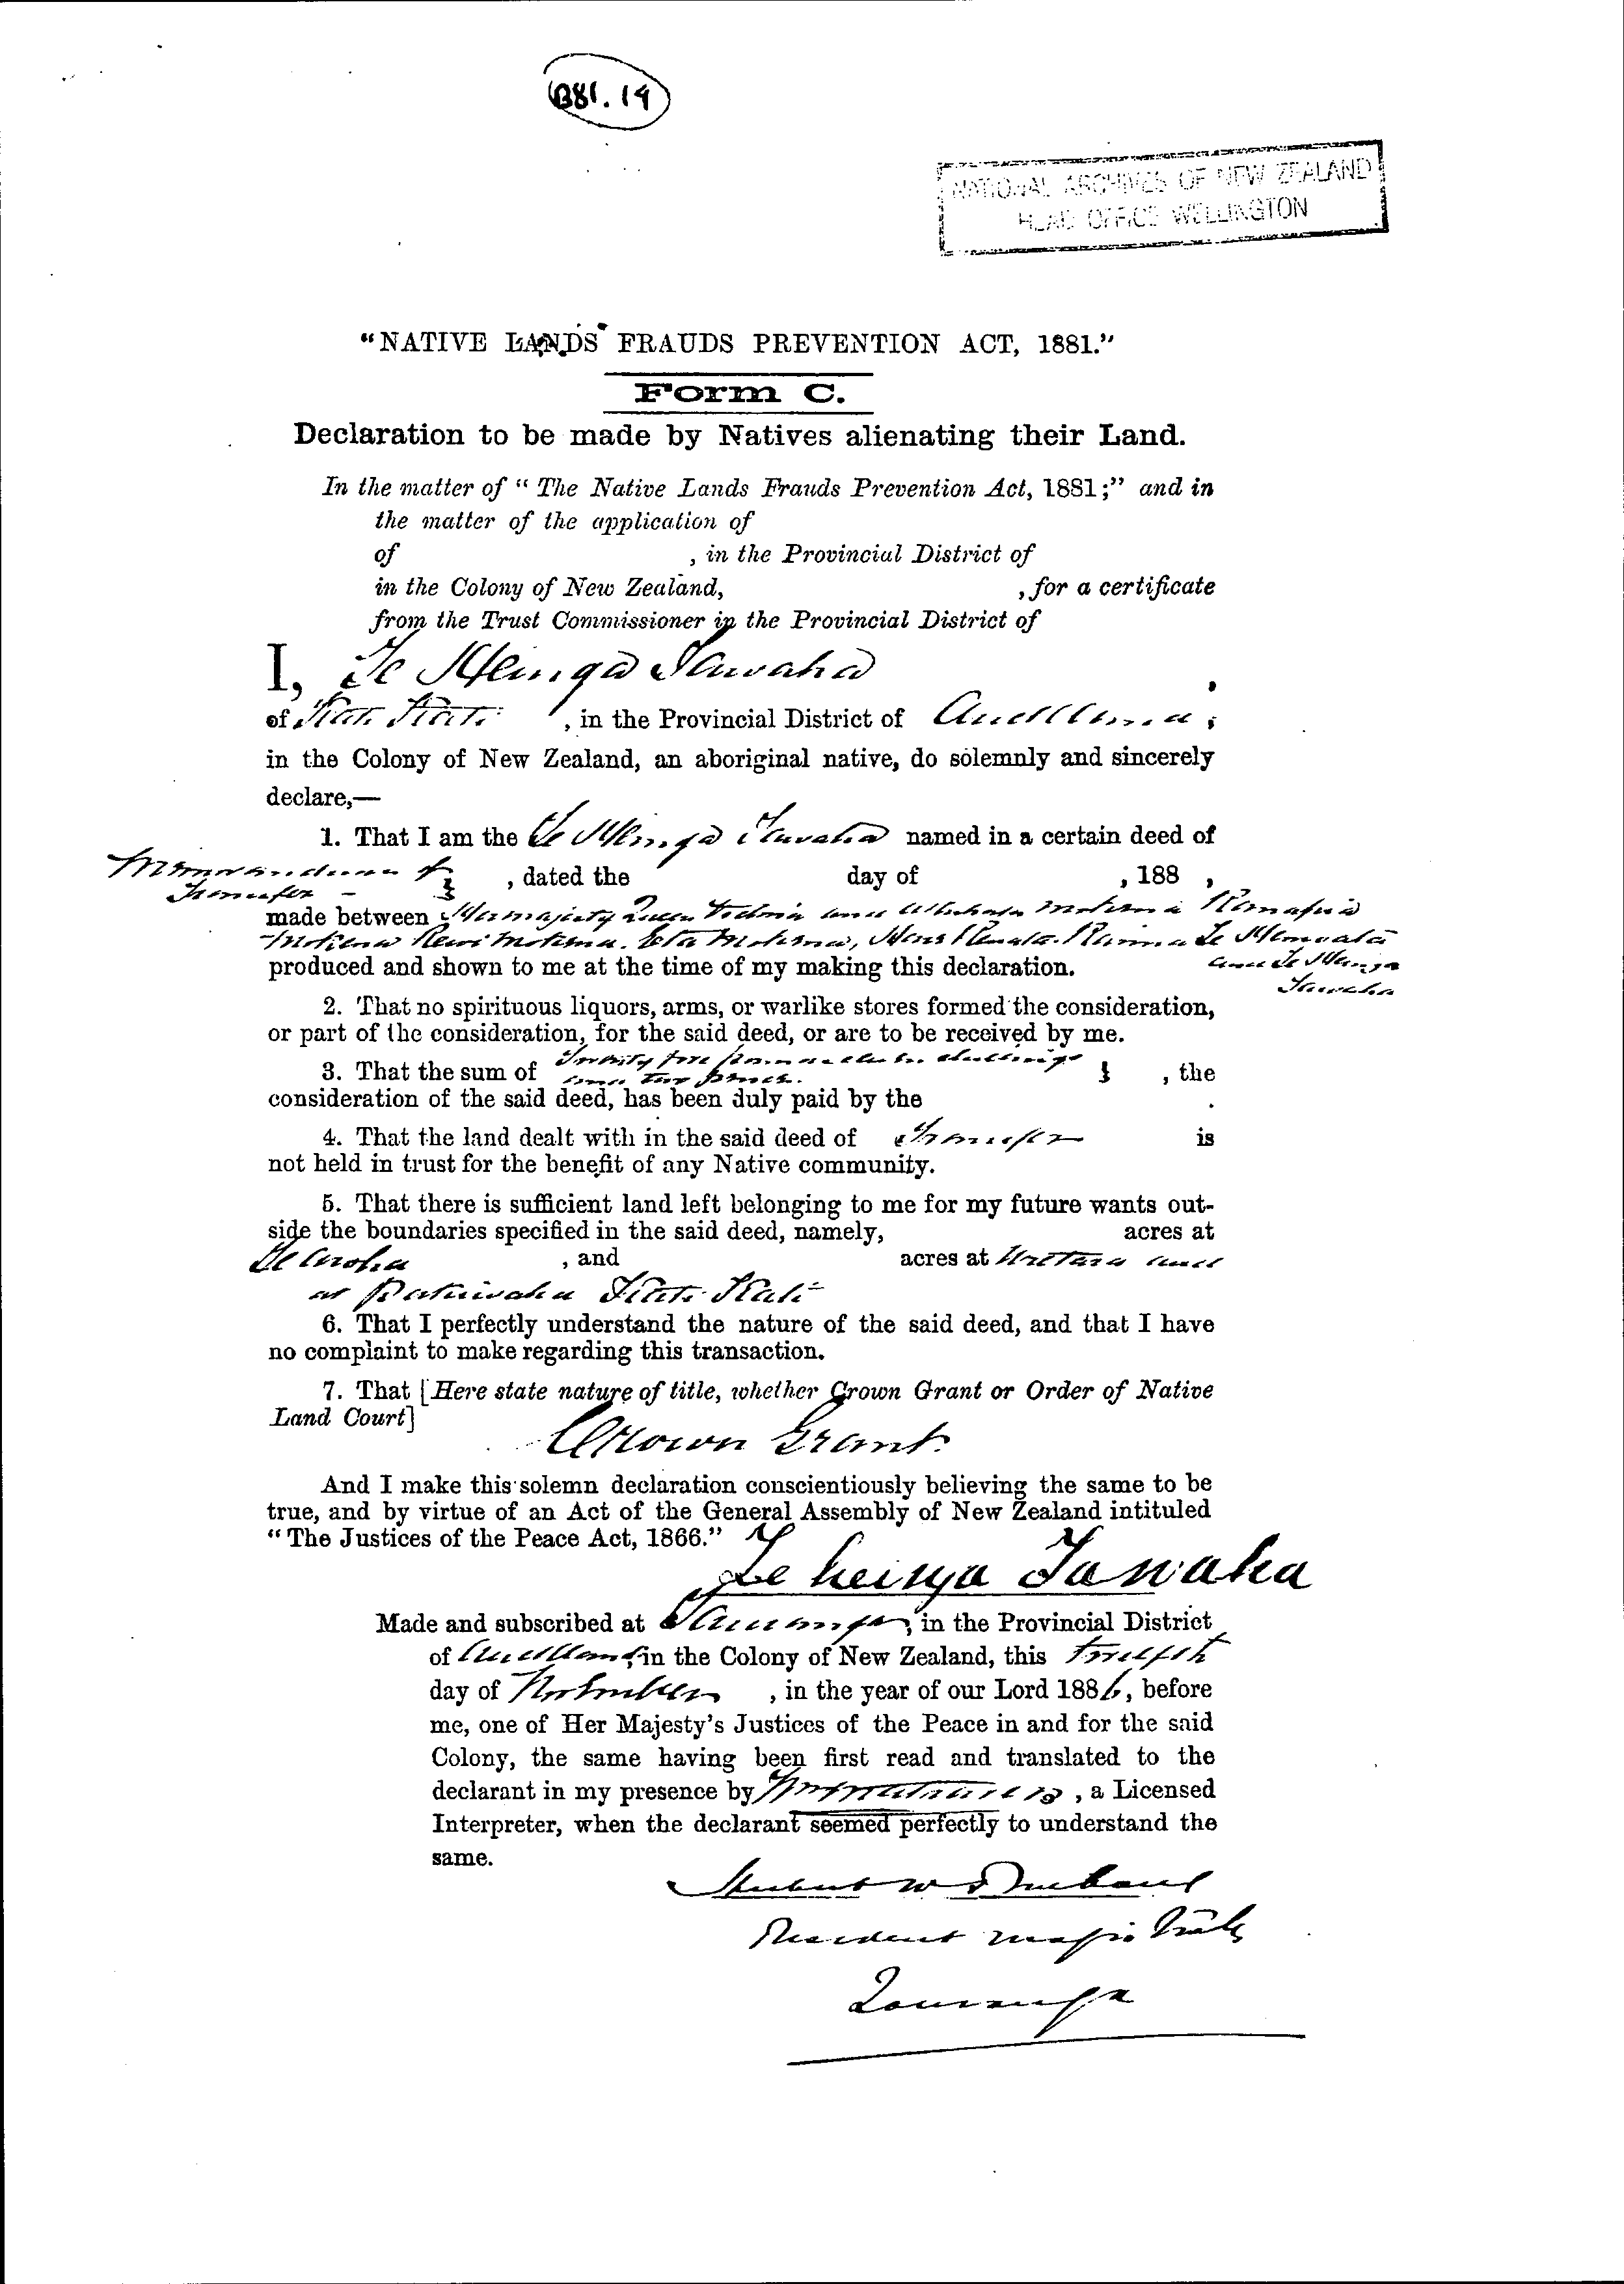 B81.19
NATIONAL ARCHIVES OF NEW ZEALAND
HEAD OFFICE WELLINGTON
"NATIVE LANDS FRAUDS PREVENTION ACT, 1881."
Form C.
Declaration to be made by Natives alienating their Land.
In the matter of "The Native Lands Frauds Prevention Act, 1881;" and in
the matter of the application of
of , in the Provincial District of
in the Colony of New Zealand, , for a certificate
from the Trust Commissioner in the Provincial District of
I, Te Heinga Tawaha ,
of Kati Kati , in the Provincial District of Auckland ,
in the Colony of New Zealand, an aboriginal native, do solemnly and sincerely
declare,—
1. That I am the Te Heinga Tawaha named in a certain deed of
Memorandum of
Transfer , dated the day of , 188 ,
made between Her Majesty Queen Victoria and Mokena
Mokena Rewi Mokena. Mokena, Te
produced and shown to me at the time of my making this declaration. and Te Heinga
Tawaha
2. That no spirituous liquors, arms, or warlike stores formed the consideration,
or part of the consideration, for the said deed, or are to be received by me.
3. That the sum of Twenty five pounds shillings
and two pence. , the
consideration of the said deed, has been duly paid by the .
4. That the land dealt with in the said deed of Transfer is
not held in trust for the benefit of any Native community.
5. That there is sufficient land left belonging to me for my future wants out-
side the boundaries specified in the said deed, namely, acres at
Te Aroha , and acres at Uretara and
at Kati Kati
6. That I perfectly understand the nature of the said deed, and that I have
no complaint to make regarding this transaction.
7. That [Here state nature of title, whether Crown Grant or Order of Native
Land Court]
Crown Grant
And I make this solemn declaration conscientiously believing the same to be
true, and by virtue of an Act of the General Assembly of New Zealand intituled
"The Justices of the Peace Act, 1866."
Te heinga Tawaha
Made and subscribed at Tauranga, in the Provincial District
of Auckland, in the Colony of New Zealand, this Twelfth
day of November , in the year of our Lord 1886, before
me, one of Her Majesty's Justices of the Peace in and for the said
Colony, the same having been first read and translated to the
declarant in my presence by , a Licensed
Interpreter, when the declarant seemed perfectly to understand the
same.
Herbert W Brabant
Resident Magistrate
Tauranga